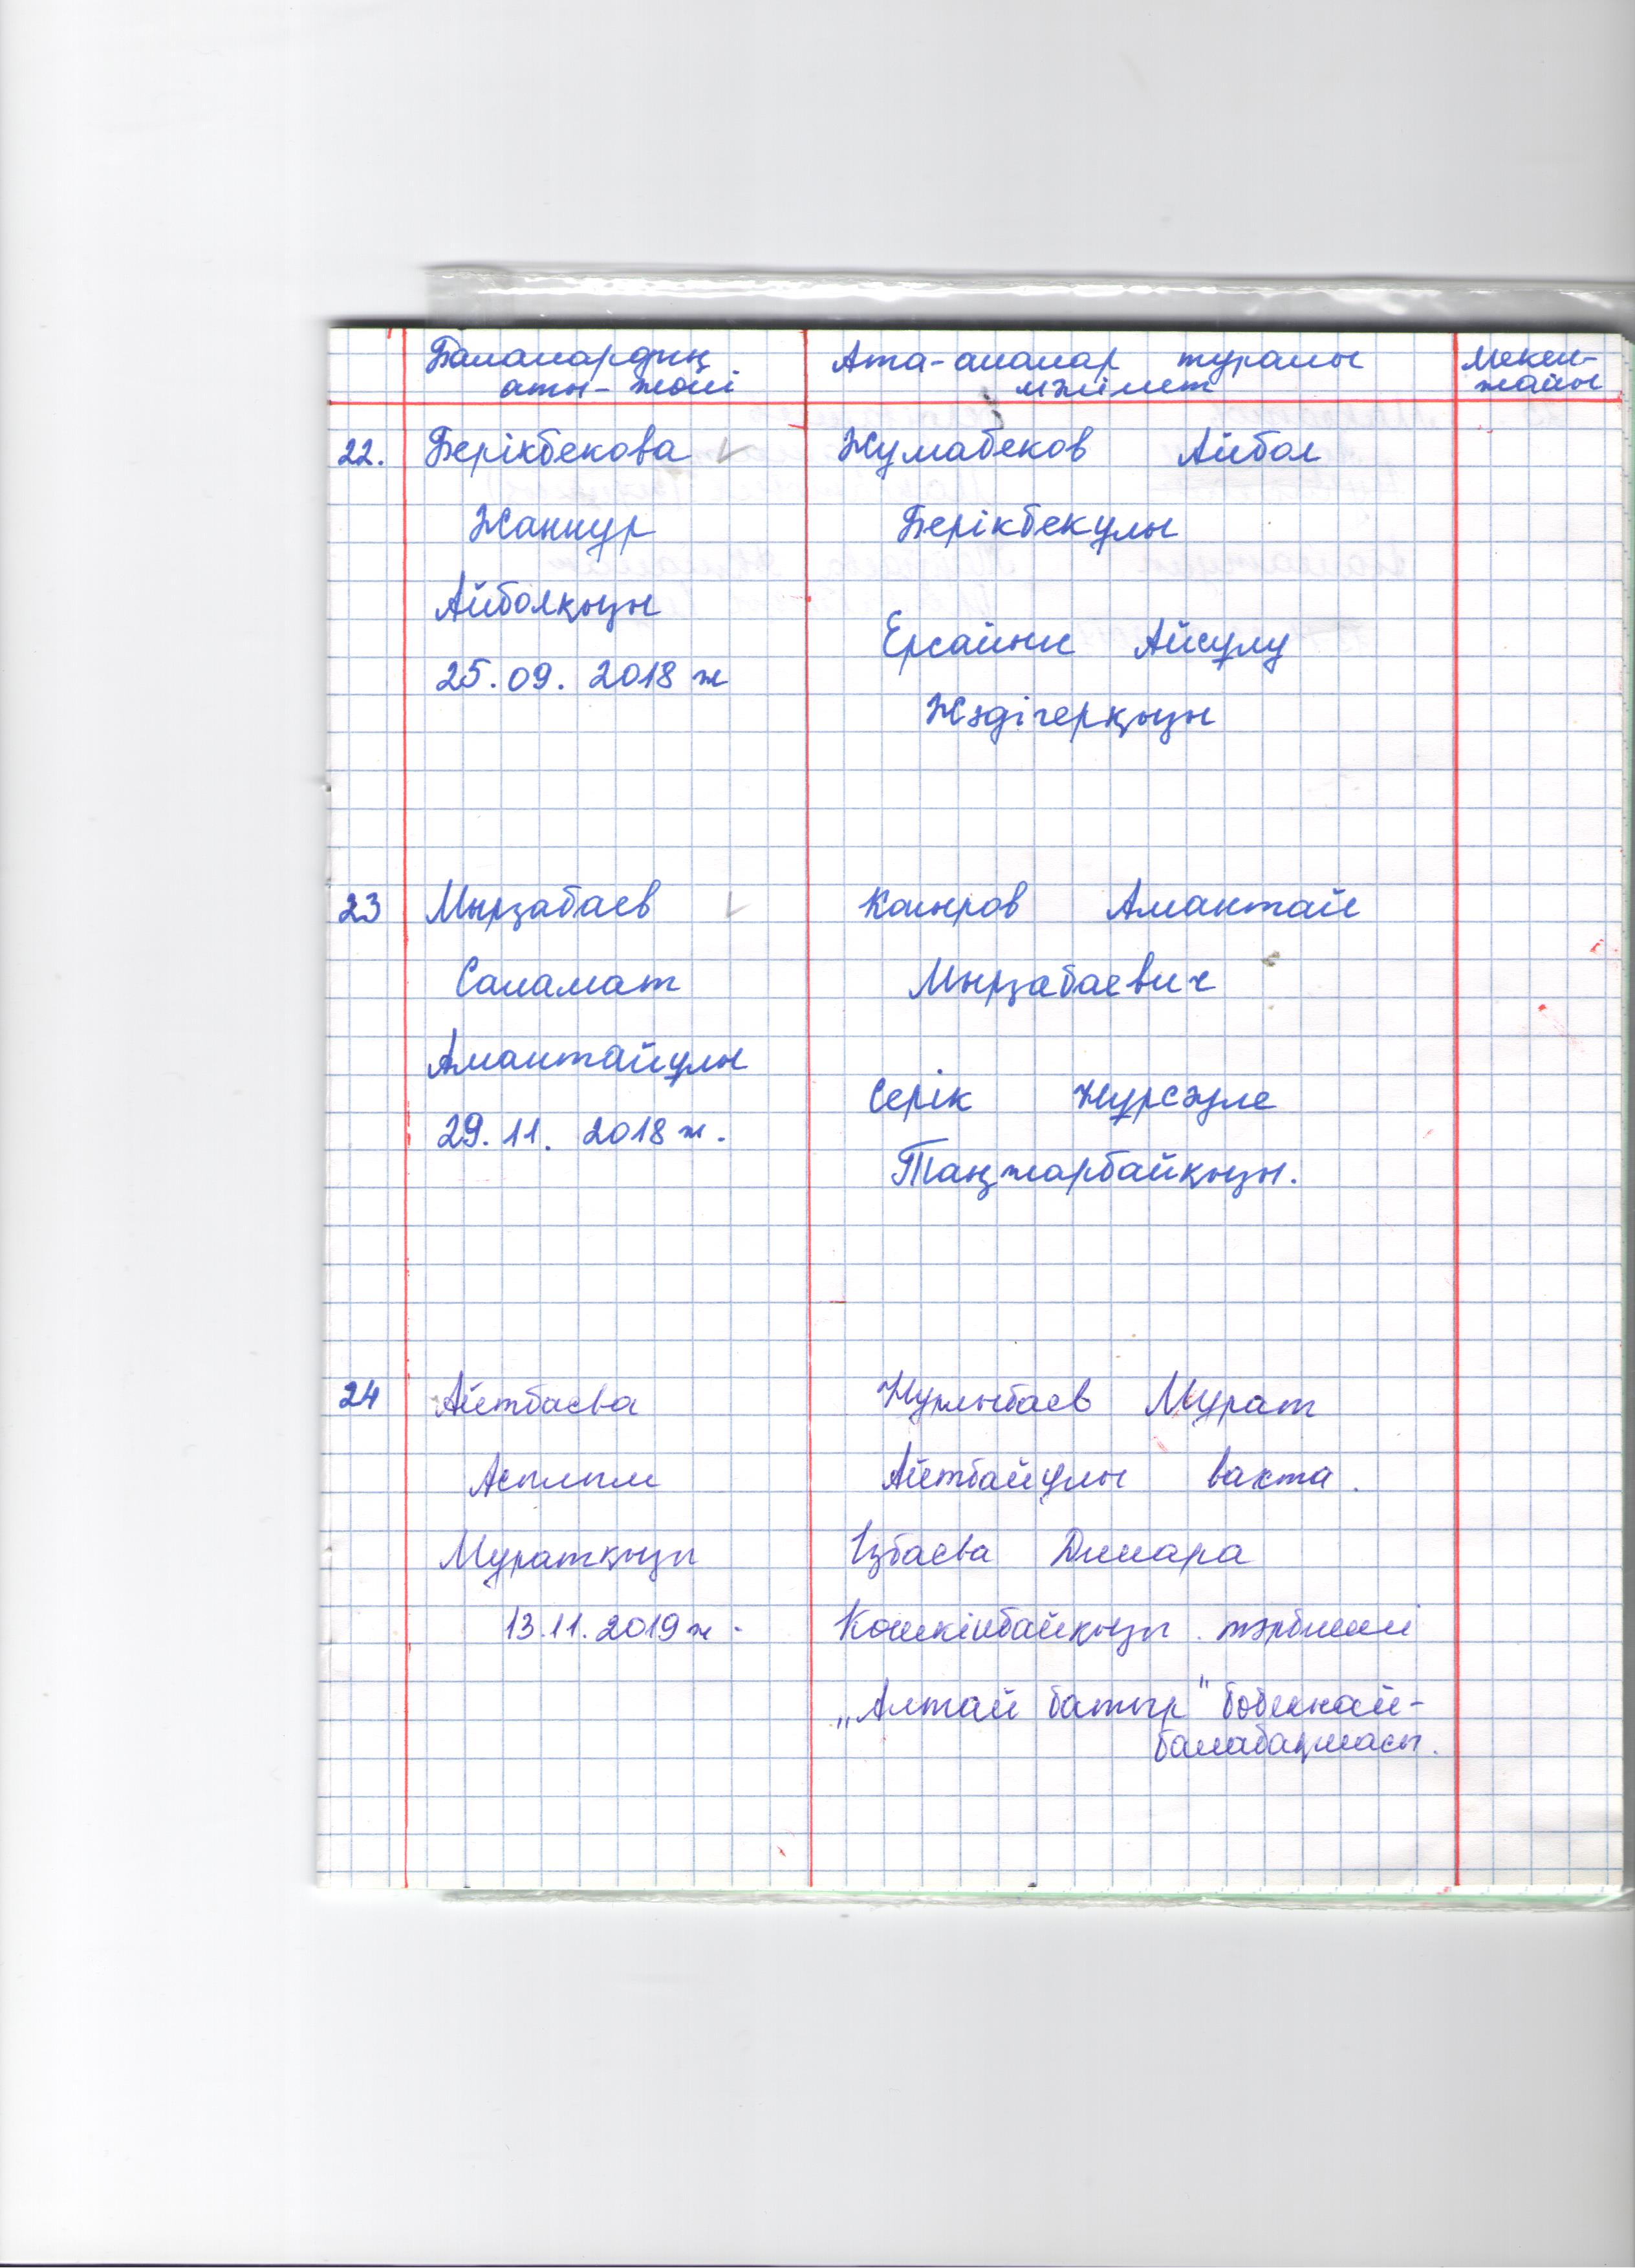 Балалардың аты-жөні
Ата-аналар туралы мәлімет
Мекен-жайы
22. Берікбекова
Жаннұр
Айболқызы
25.09.2018 ж
Жумабеков Айбол
Берікбекұлы
Ерсайын Айсұлу
Жәдігерқызы
23 Мырзабаев
Саламат
Амантайұлы
29.11. 2018 ж.
Каиыров Амантай
Мырзабаевич
Серік Нұрсәуле
Таңжарбайқызы.
24 Айтбаева
Асылым
Муратқызы
13.11.2019 ж.
Нұрлыбаев Мұрат
Айтбайұлы вахта.
Ізбаева Динара
Көшкінбайқызы. тәрбиеші
„Алтай батыр" бөбекжай-
балабақшасы.